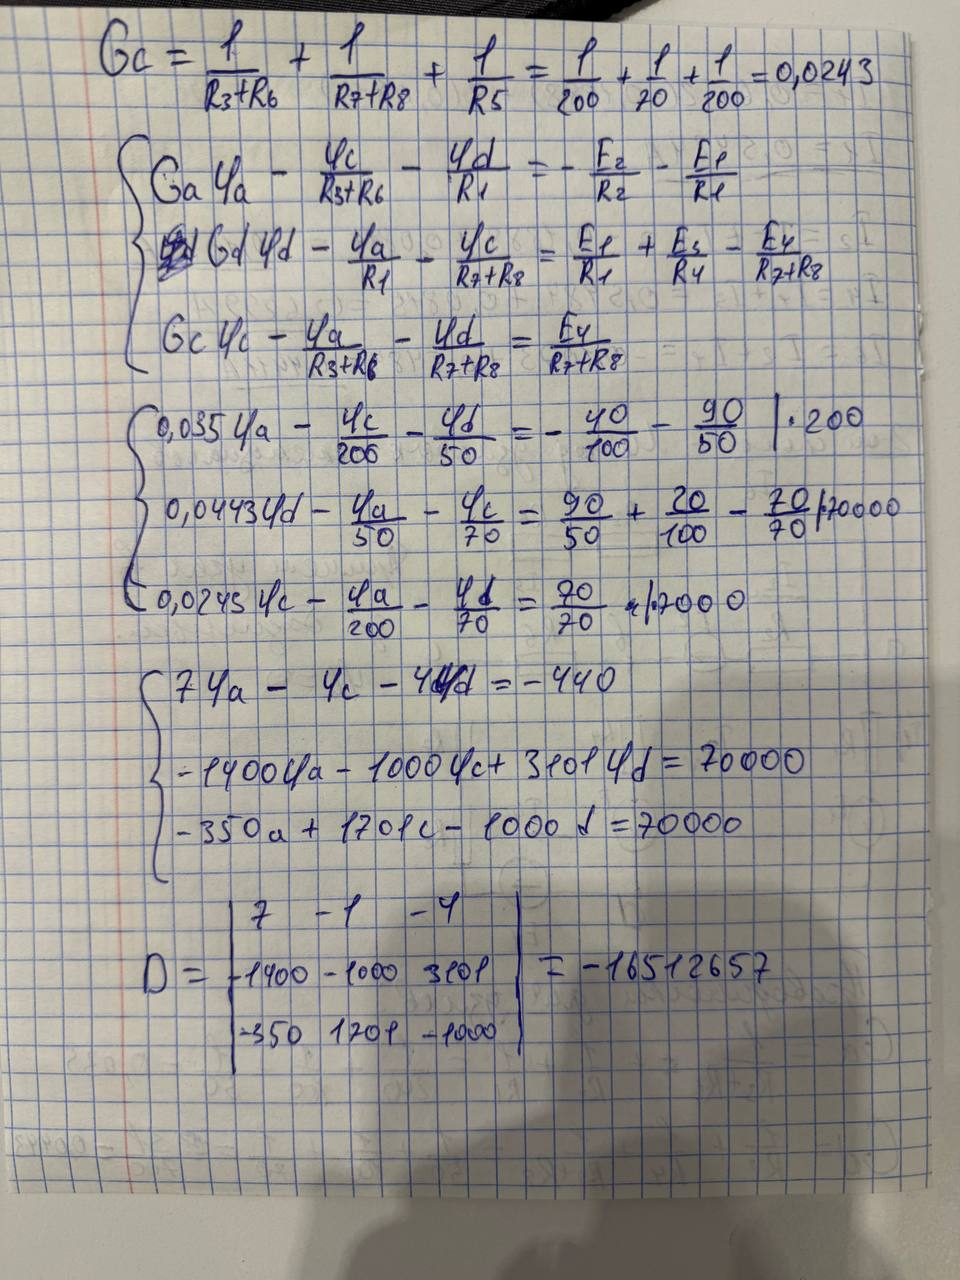 Gc = 1/(R3+R6) + 1/(R7+R8) + 1/R5 = 1/200 + 1/70 + 1/200 = 0,0243
Ga φa - φc/(R3+R6) - φd/R1 = - E2/R2 - E1/R1
Gd φd - φa/R1 - φc/(R7+R8) = E1/R1 + E3/R4 - E4/(R7+R8)
Gc φc - φa/(R3+R6) - φd/(R7+R8) = E4/(R7+R8)
0,035 φa - φc/200 - φd/50 = - 40/100 - 90/50 | · 200
0,0443 φd - φa/50 - φc/70 = 90/50 + 20/100 - 70/70 | · 70000
0,0243 φc - φa/200 - φd/70 = 70/70 | · 70000
7φa - φc - 4φd = -440
-1400φa - 1000φc + 3101φd = 70000
-350a + 1701c - 1000d = 70000
7 -1 -4
D = -1400 -1000 3101 = -16512657
-350 1701 -1000